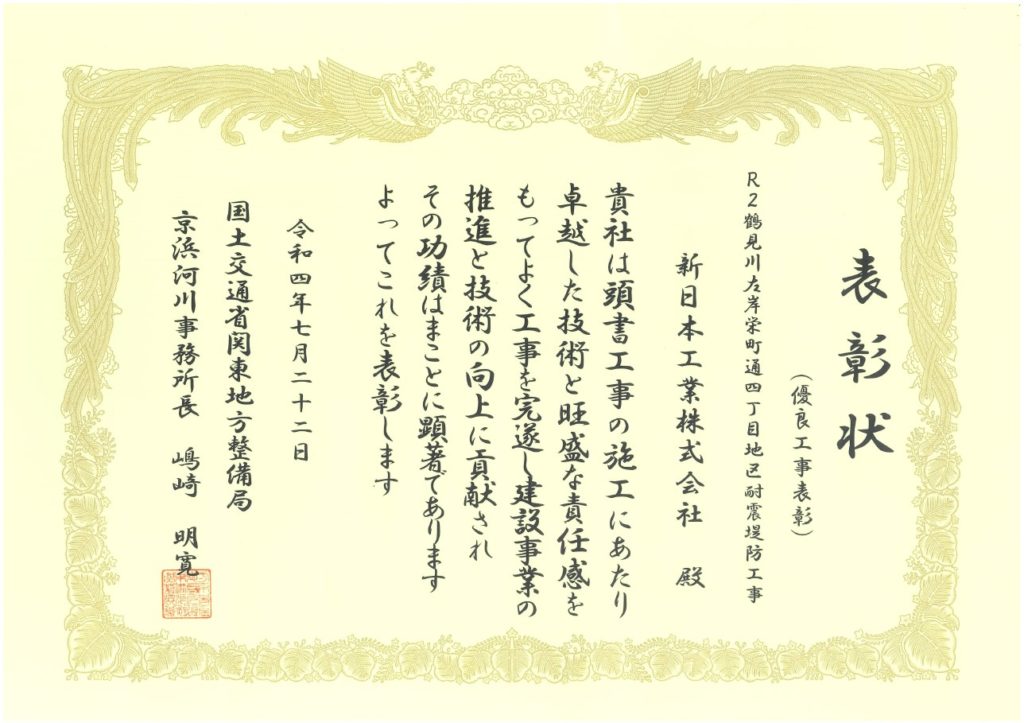 表彰状
(優良工事表彰)
R2鶴見川左岸栄町通四丁目地区耐震堤防工事
新日本工業株式会社 殿
貴社は頭書工事の施工にあたり
卓越した技術と旺盛な責任感を
もってよく工事を完遂し建設事業の
推進と技術の向上に貢献され
その功績はまことに顕著であります
よってこれを表彰します
令和四年七月二十二日
国土交通省関東地方整備局
京浜河川事務所長 嶋崎 明寛